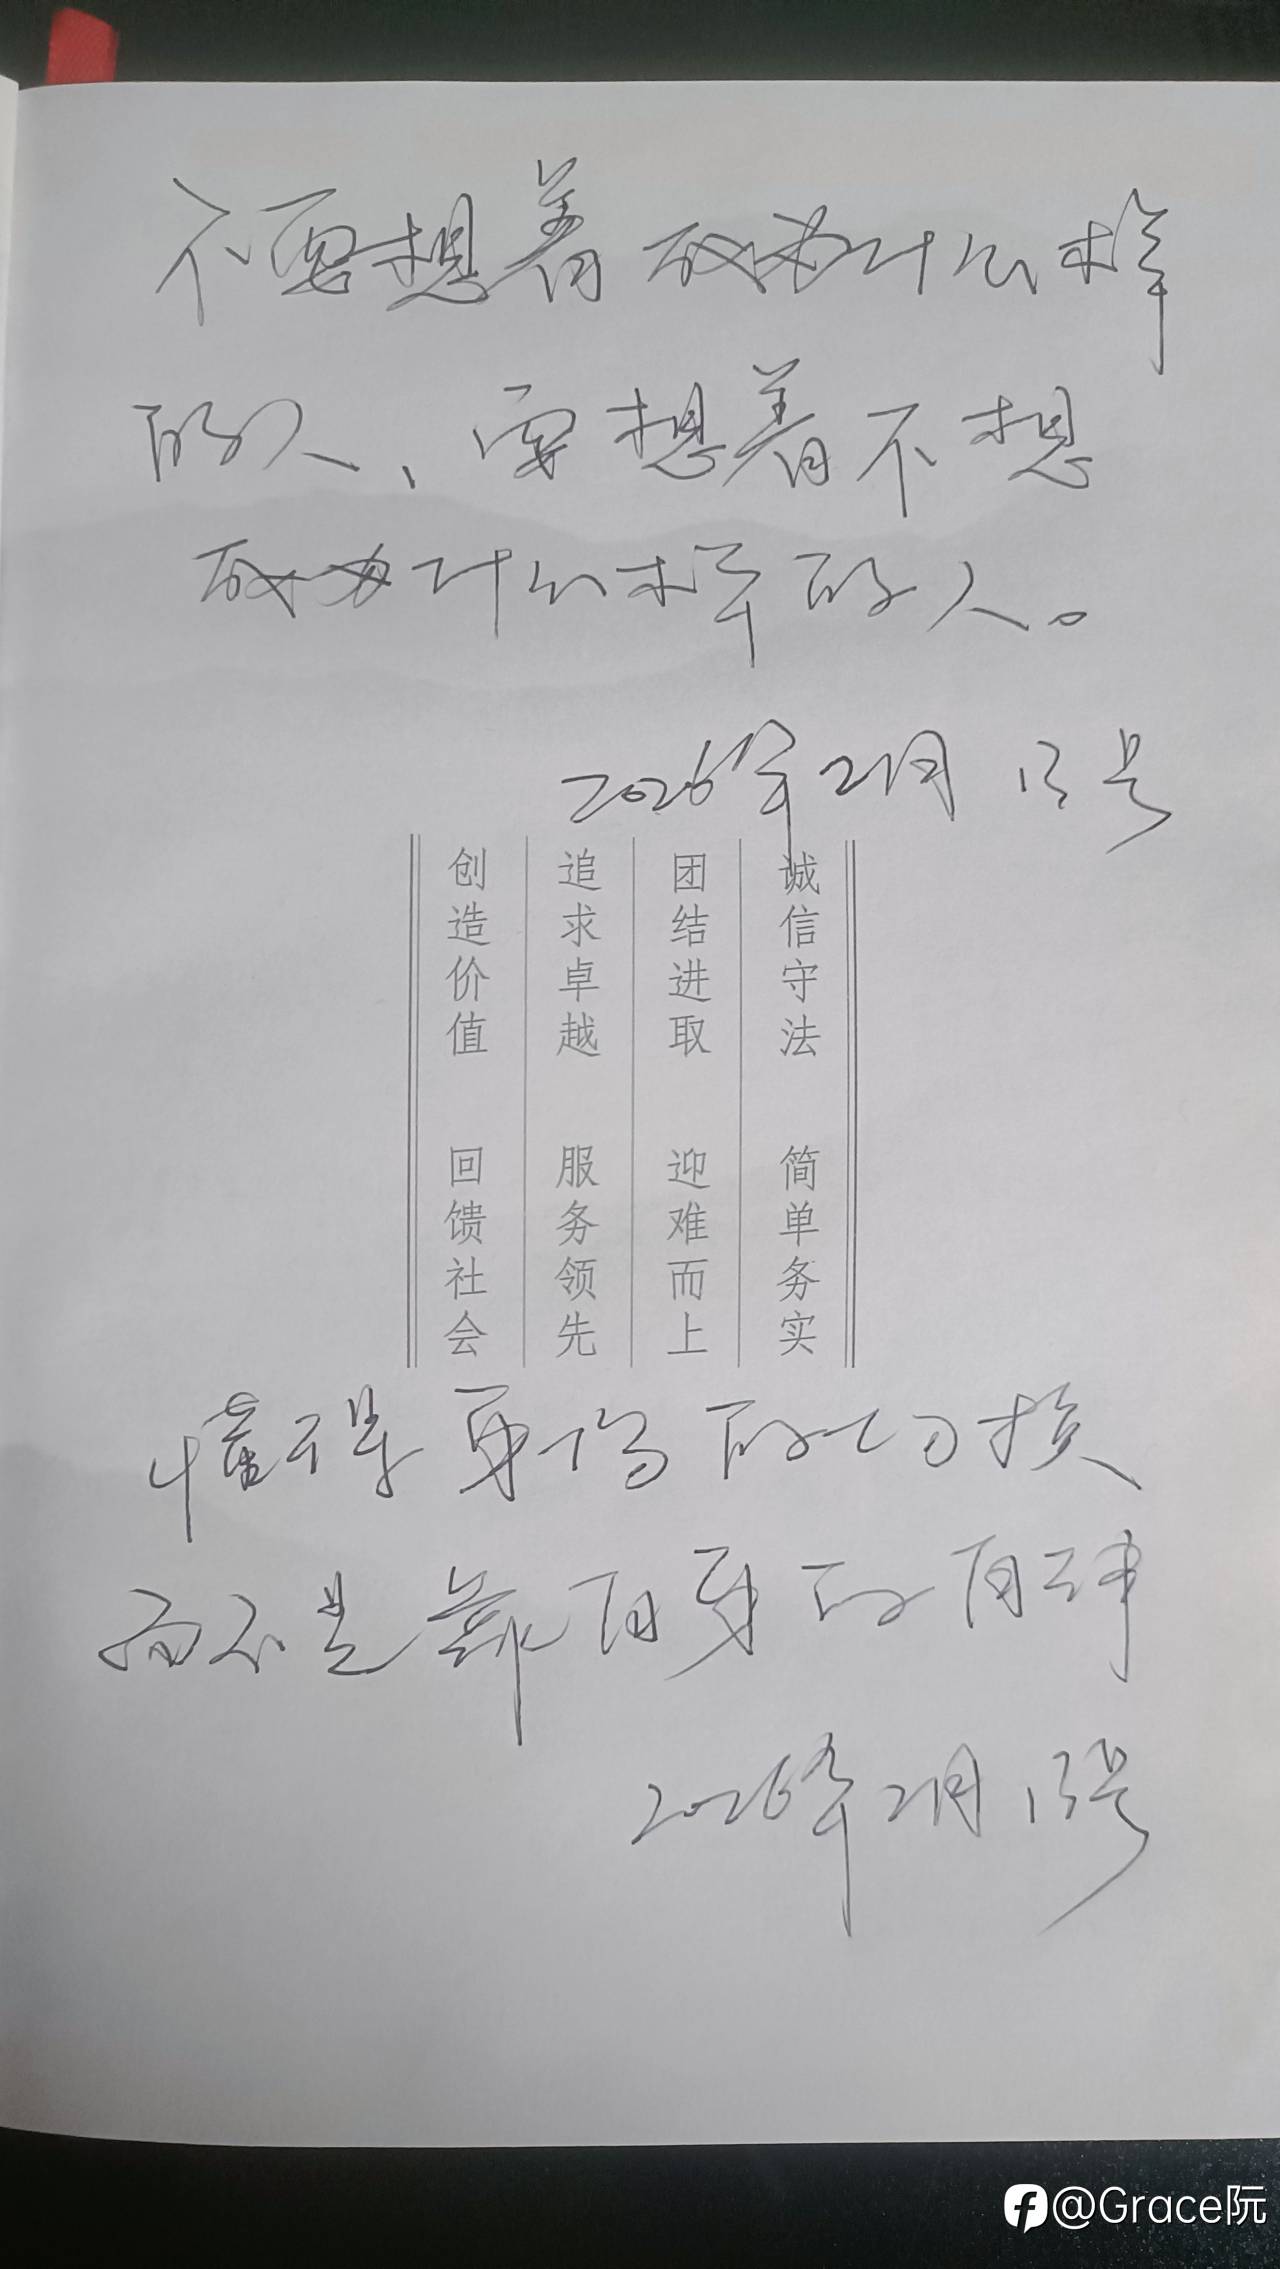 不要想着成为什么样
的人、要想着不想
成为什么样的人。
2026年2月13号
诚信守法 简单务实
团结进取 迎难而上
追求卓越 服务领先
创造价值 回馈社会
懂得身得的切换
而不是靠自身的自神
2026年2月13号
@Grace阮